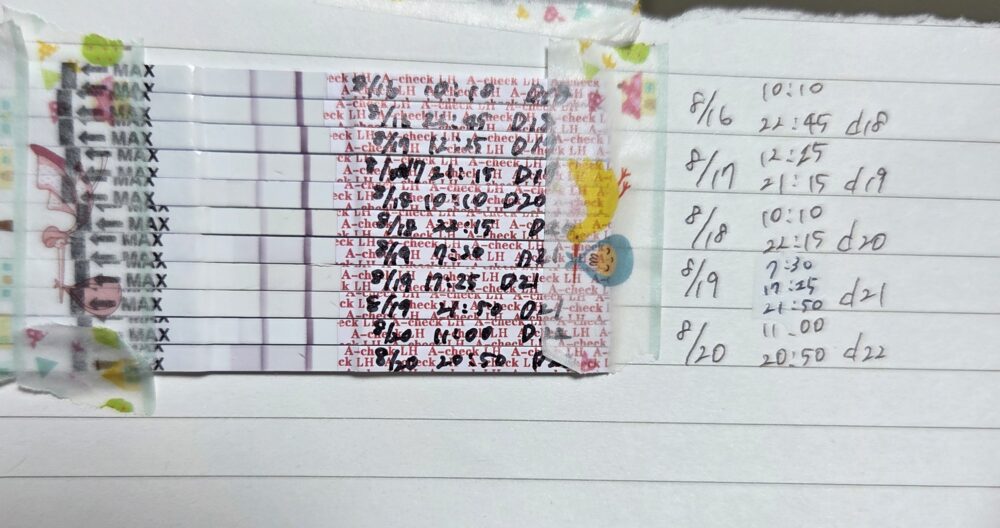 MAX 8/15 10:10 A-check LH
MAX 8/16 22:45 D18
MAX 8/19 12:25 A-check LH
MAX 8/17 21:15 A-check LH
MAX 8/18 10:10 D20
MAX 8/18 22:15 A-check LH
MAX 8/19 7:30 A-check LH
MAX 8/19 17:25 D21
MAX 8/19 21:50 D21
MAX 8/20 11:00 A-check LH
8/20 20:50 A-check LH
10:10
8/16 22:45 d18
12:25
8/17 21:15 d19
10:10
8/18 22:15 d20
7:30
8/19 17:25 d21
21:50
11:00
8/20 20:50 d22